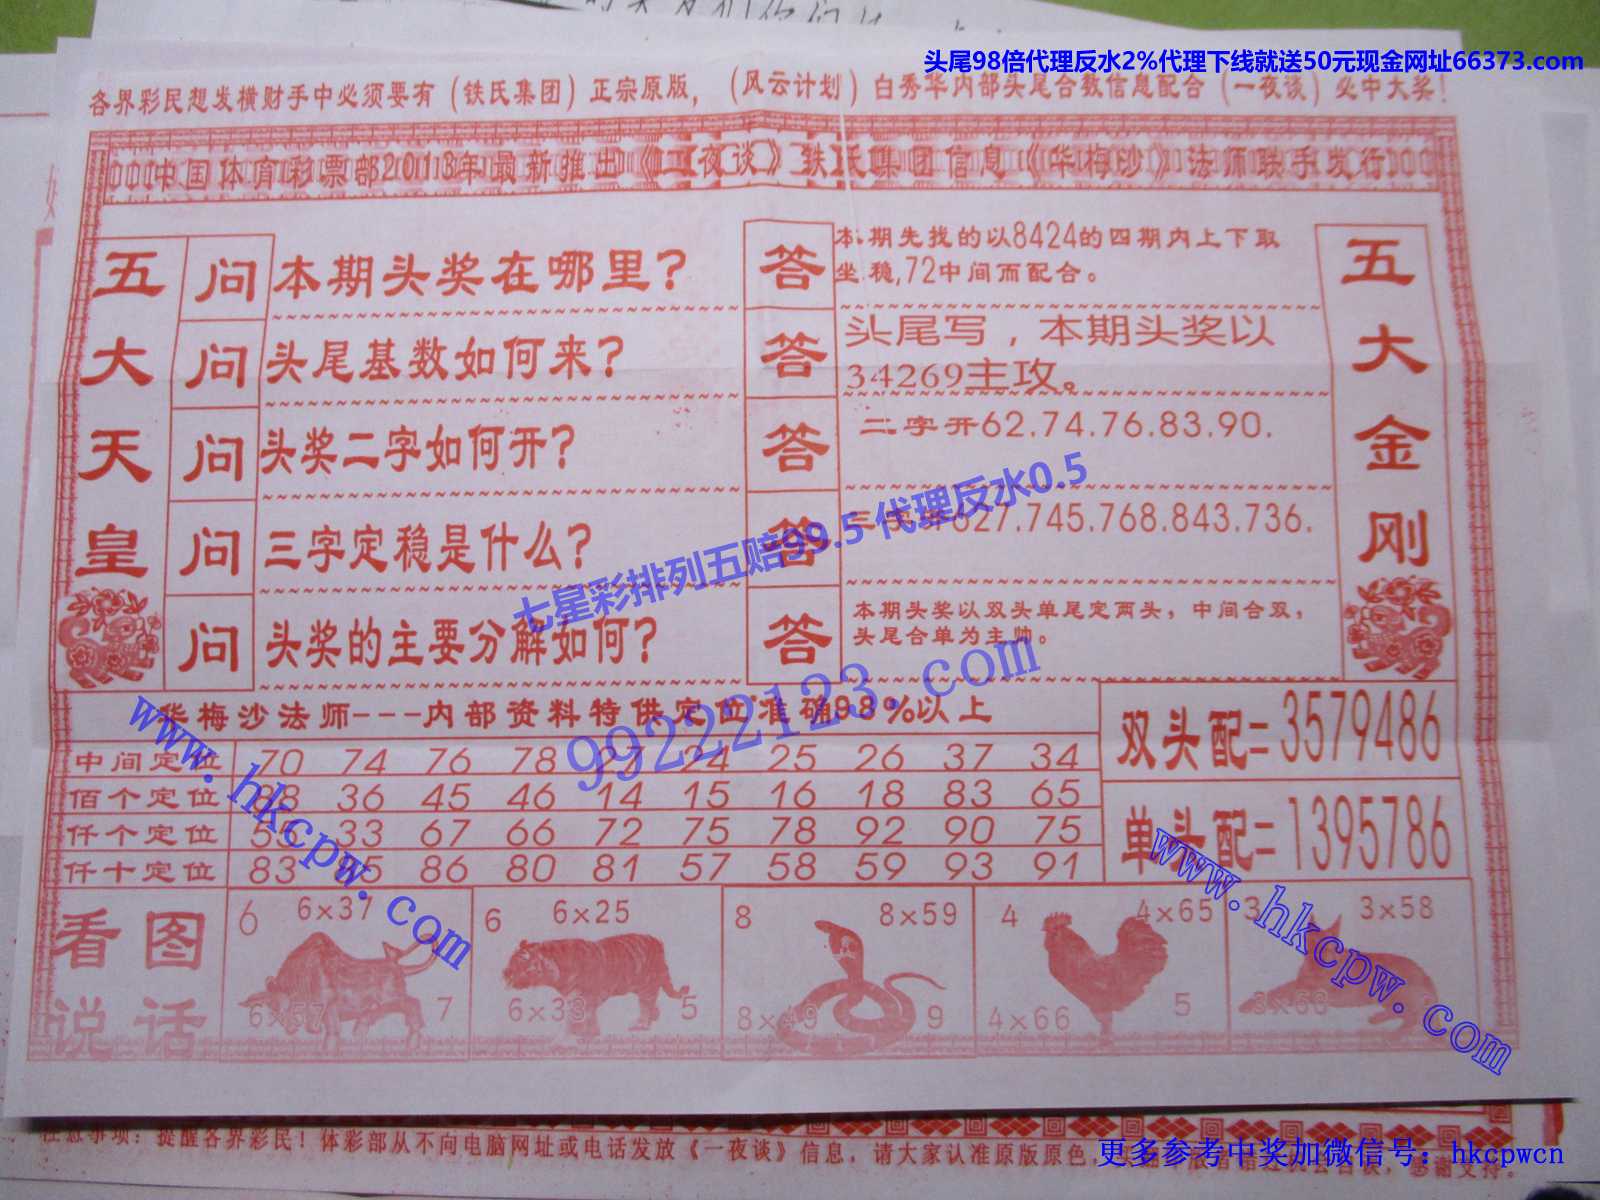 头尾98倍代理反水2%代理下线就送50元现金网址66373.com
各界彩民想发横财手中必须要有（铁氏集团）正宗原版，（风云计划）白秀华内部头尾合数信息配合（一夜谈）必中大奖！
中国体育彩票部2013年最新推出《一夜谈》铁氏集团信息《华梅沙》法师联手发行
五大天皇
问 本期头奖在哪里？
答 本期先找的以8424的四期内上下取
坐稳,72中间而配合。
问 头尾基数如何来？
答 头尾写，本期头奖以
34269主攻。
问 头奖二字如何开？
答 二字开62.74.76.83.90.
问 三字定稳是什么？
答 627.745.768.843.736.
问 头奖的主要分解如何？
答 本期头奖以双头单尾定两头，中间合双，
头尾合单为主帅。
五大金刚
七星彩排列五赔99.5 代理反水0.5
99222123.com
华梅沙法师---内部资料特供定位准确98%以上
中间定位 70 74 76 78 27 24 25 26 37 34
佰个定位 88 36 45 46 14 15 16 18 83 65
仟个定位 55 33 67 66 72 75 78 92 90 75
仟十定位 83 86 80 81 57 58 59 93 91
双头配=3579486
单头配=1395786
www.hkcpw.com
www.hkcpw.com
看图说话
6 6×37 6×57 7
6 6×25 6×33 5
8 8×59 8×49 9
4 4×65 4×66 5
3 3×58 3×63
注意事项：提醒各界彩民！体彩部从不向电脑网址或电话发放《一夜谈》信息，请大家认准原版原色，
感谢支持。
更多参考中奖加微信号：hkcpwcn